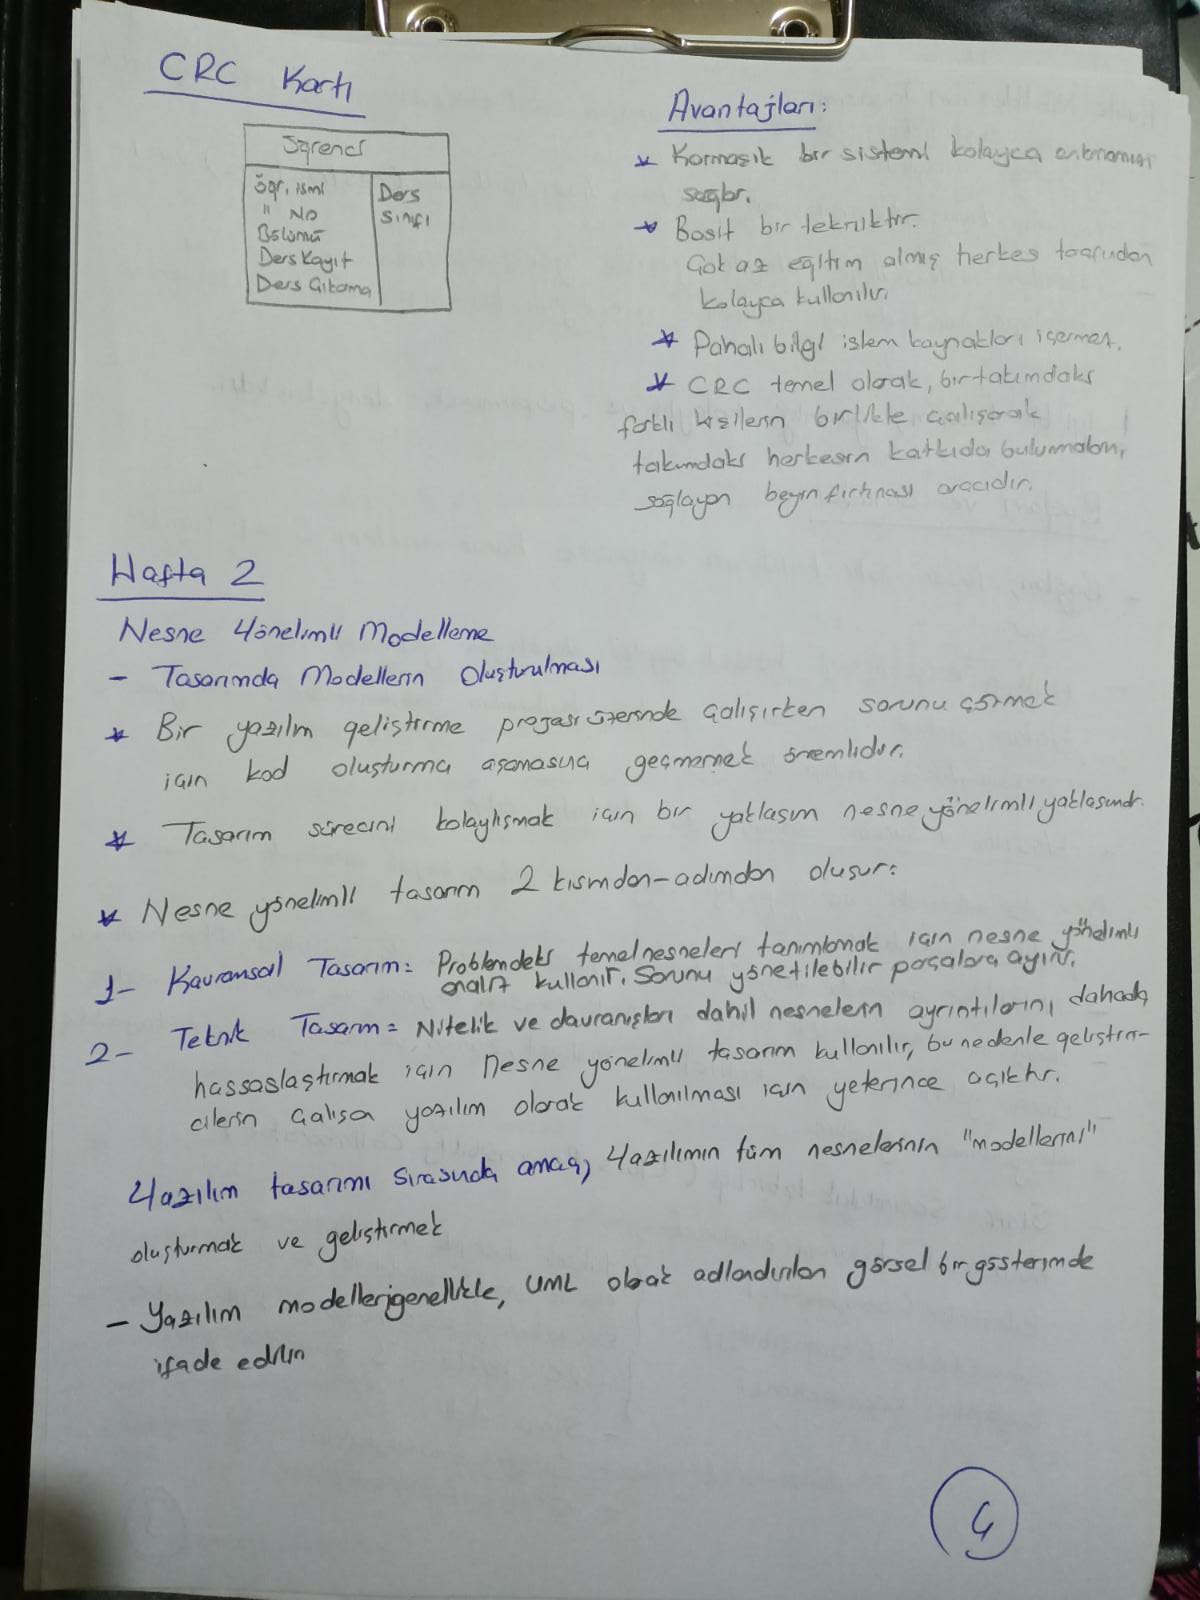 CRC Kartı
Öğrenci
Öğr. ismi
" No
Bölümü
Ders Kayıt
Ders Çıkarma
Ders
Sınıfı
Avantajları:
* Karmaşık bir sistemi kolayca anlamamızı
sağlar.
* Basit bir tekniktir.
Çok az eğitim almış herkes tarafından
kolayca kullanılır.
* Pahalı bilgi işlem kaynakları içermez.
* CRC temel olarak, bir takımdaki
farklı kişilerin birlikte çalışarak
takımdaki herkesin katkıda bulunmaları,
sağlayan beyin fırtınası aracıdır.
Hafta 2
Nesne Yönelimli Modelleme
- Tasarımda Modellerin Oluşturulması
* Bir yazılım geliştirme projesi üzerinde çalışırken sorunu çözmek
için kod oluşturma aşamasına geçmemek önemlidir.
* Tasarım sürecini kolaylışmak için bir yaklaşım nesne yönelimli yaklaşımdır.
* Nesne yönelimli tasarım 2 kısımdan-adımdan oluşur:
1- Kavramsal Tasarım: Problemdeki temel nesneleri tanımlamak için nesne yönelimli
analiz kullanır. Sorunu yönetilebilir parçalara ayırır.
2- Teknik Tasarım = Nitelik ve davranışları dahil nesnelerin ayrıntılarını dahada
hassaslaştırmak için Nesne yönelimli tasarım kullanılır, bu nedenle geliştiri-
cilerin çalışan yazılım olarak kullanılması için yeterince açıktır.
Yazılım tasarımı sırasında amaç, Yazılımın tüm nesnelerinin "modellerini"
oluşturmak ve geliştirmek
- Yazılım modelleri genellikle, UML olarak adlandırılan görsel bir gösterimde
ifade edilir
4